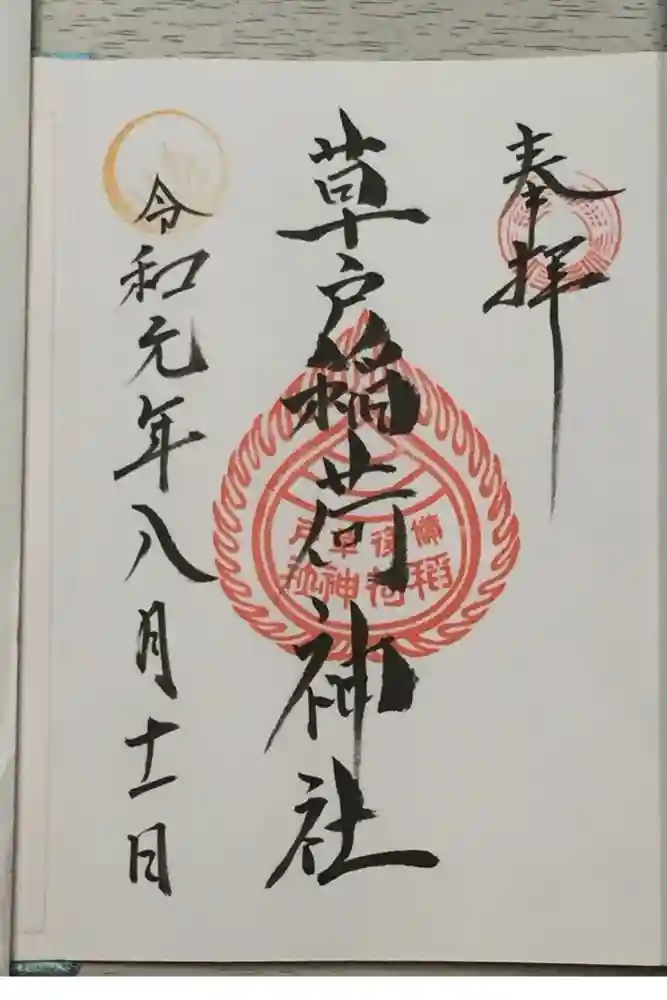 奉拝
草戸稲荷神社
備後草戸
稲荷神社
令和元年八月十一日